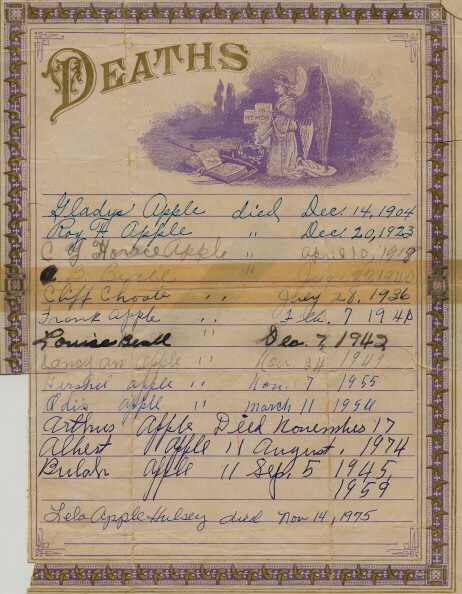 DEATHS
IN MEMORY
Gladys Apple died Dec. 14, 1904
Roy F Apple " Dec. 20, 1923
C. Y. Horace Apple " April 10, 1919
" 1940
Cliff Choate " 28, 1936
Frank Apple " Feb. 7 1941
Louise Beall " Dec. 7, 1942
Nancy an apple " Nov. 24
Hershel apple " Nov. 7 1955
Odis apple " march 11 1954
Arthur Apple Died November 17
Albert Apple " August, 1974
Bulah Apple " Sep. 5 1945,
1959
Lela Apple Hulsey died Nov 14, 1975